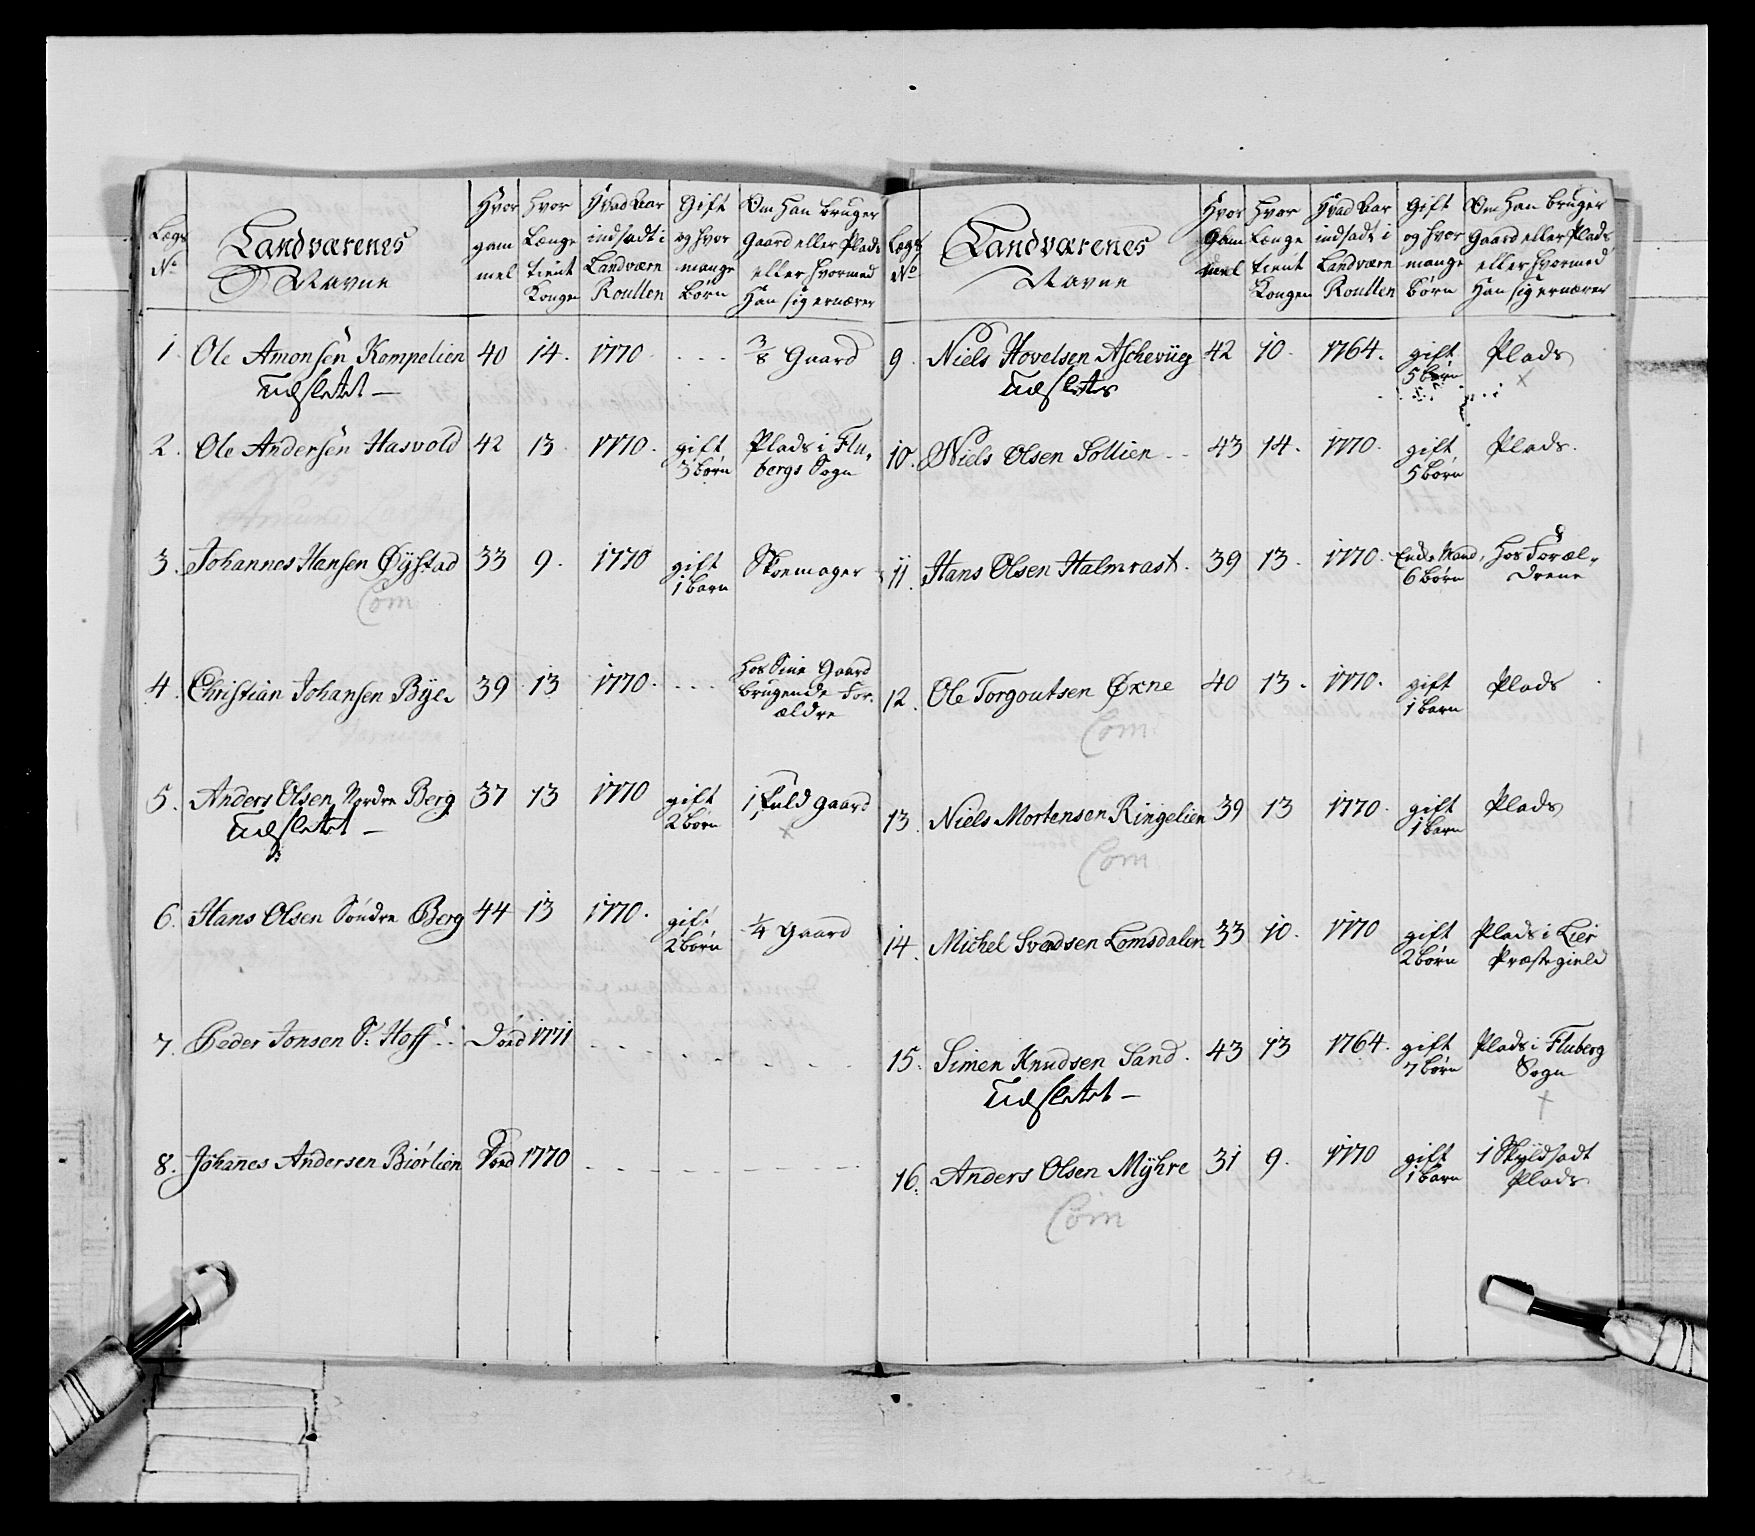 Lægs No | Landværenes Navne | Hvor gammel | Hvor Længe tient Kongen | Hvad Aar indsadt i Landværn Roullen | Gift og hvor mange Børn | Om Han bruger Gaard eller Plads eller hvormed Han sig ernærer
1. Ole Amonsen Kompelien 40 14. 1770. - - - 3/8 Gaard
Udslettet —
2. Ole Andersen Hasvold 42 13 1770. gift Plads i Flu-
3 børn bergs Sogn
3. Johannes Hansen Øystad 33 9. 1770 gift Skomager
1 barn
Com
4. Christian Johansen Bye. 39 13 1770. - - - hos Sine Gaard
brugende For-
ældre
5. Anders Olsen Nordre Berg 37 13 1770 gift 1 Fuld gaard
2 børn
Udslettet — x
6. Hans Olsen Søndre Berg 44 13 1770. gift 1/4 gaard
2 børn
7. Peder Jonsen S: Hoff Død 1771 - - - - - -
8. Johanes Andersen Biørlien Død 1770 - - - - - -
Lægs No | Landværenes Navne | Hvor Gammel | Hvor Længe tient Kongen | Hvad Aar indsadt i Landværn Roullen | Gift og hvor mange Børn | Om Han bruger Gaard eller Plads eller hvormed Han sig ernærer
9. Niels Hovelsen Aschevüg 42 10. 1764. gift Plads
5 børn x
Udslettes
10. Niels Olsen Sollien - - 43 14. 1770. gift Plads.
5 børn
11. Hans Olsen Halmrast. 39 13. 1770. Enke Mand, hos Foræl-
6 børn drene
12. Ole Torgoutsen Øxne 40 13. 1770. gift Plads
1 barn
Com
13. Niels Mortensen Ringelien 39 13 1770. gift Plads
1 barn
Com
14. Michel Svendsen Lomsdalen 33 10. 1770 gift Plads i Lier
2 børn Præstegield
15. Simen Knudsen Sand. 43 13 1764. gift Plads i Fluberg
7 børn Sogn
Udslettet — +
16. Anders Olsen Myhre 31 9. 1770 gift 1 Skyldsadt
1 barn Plads
Com